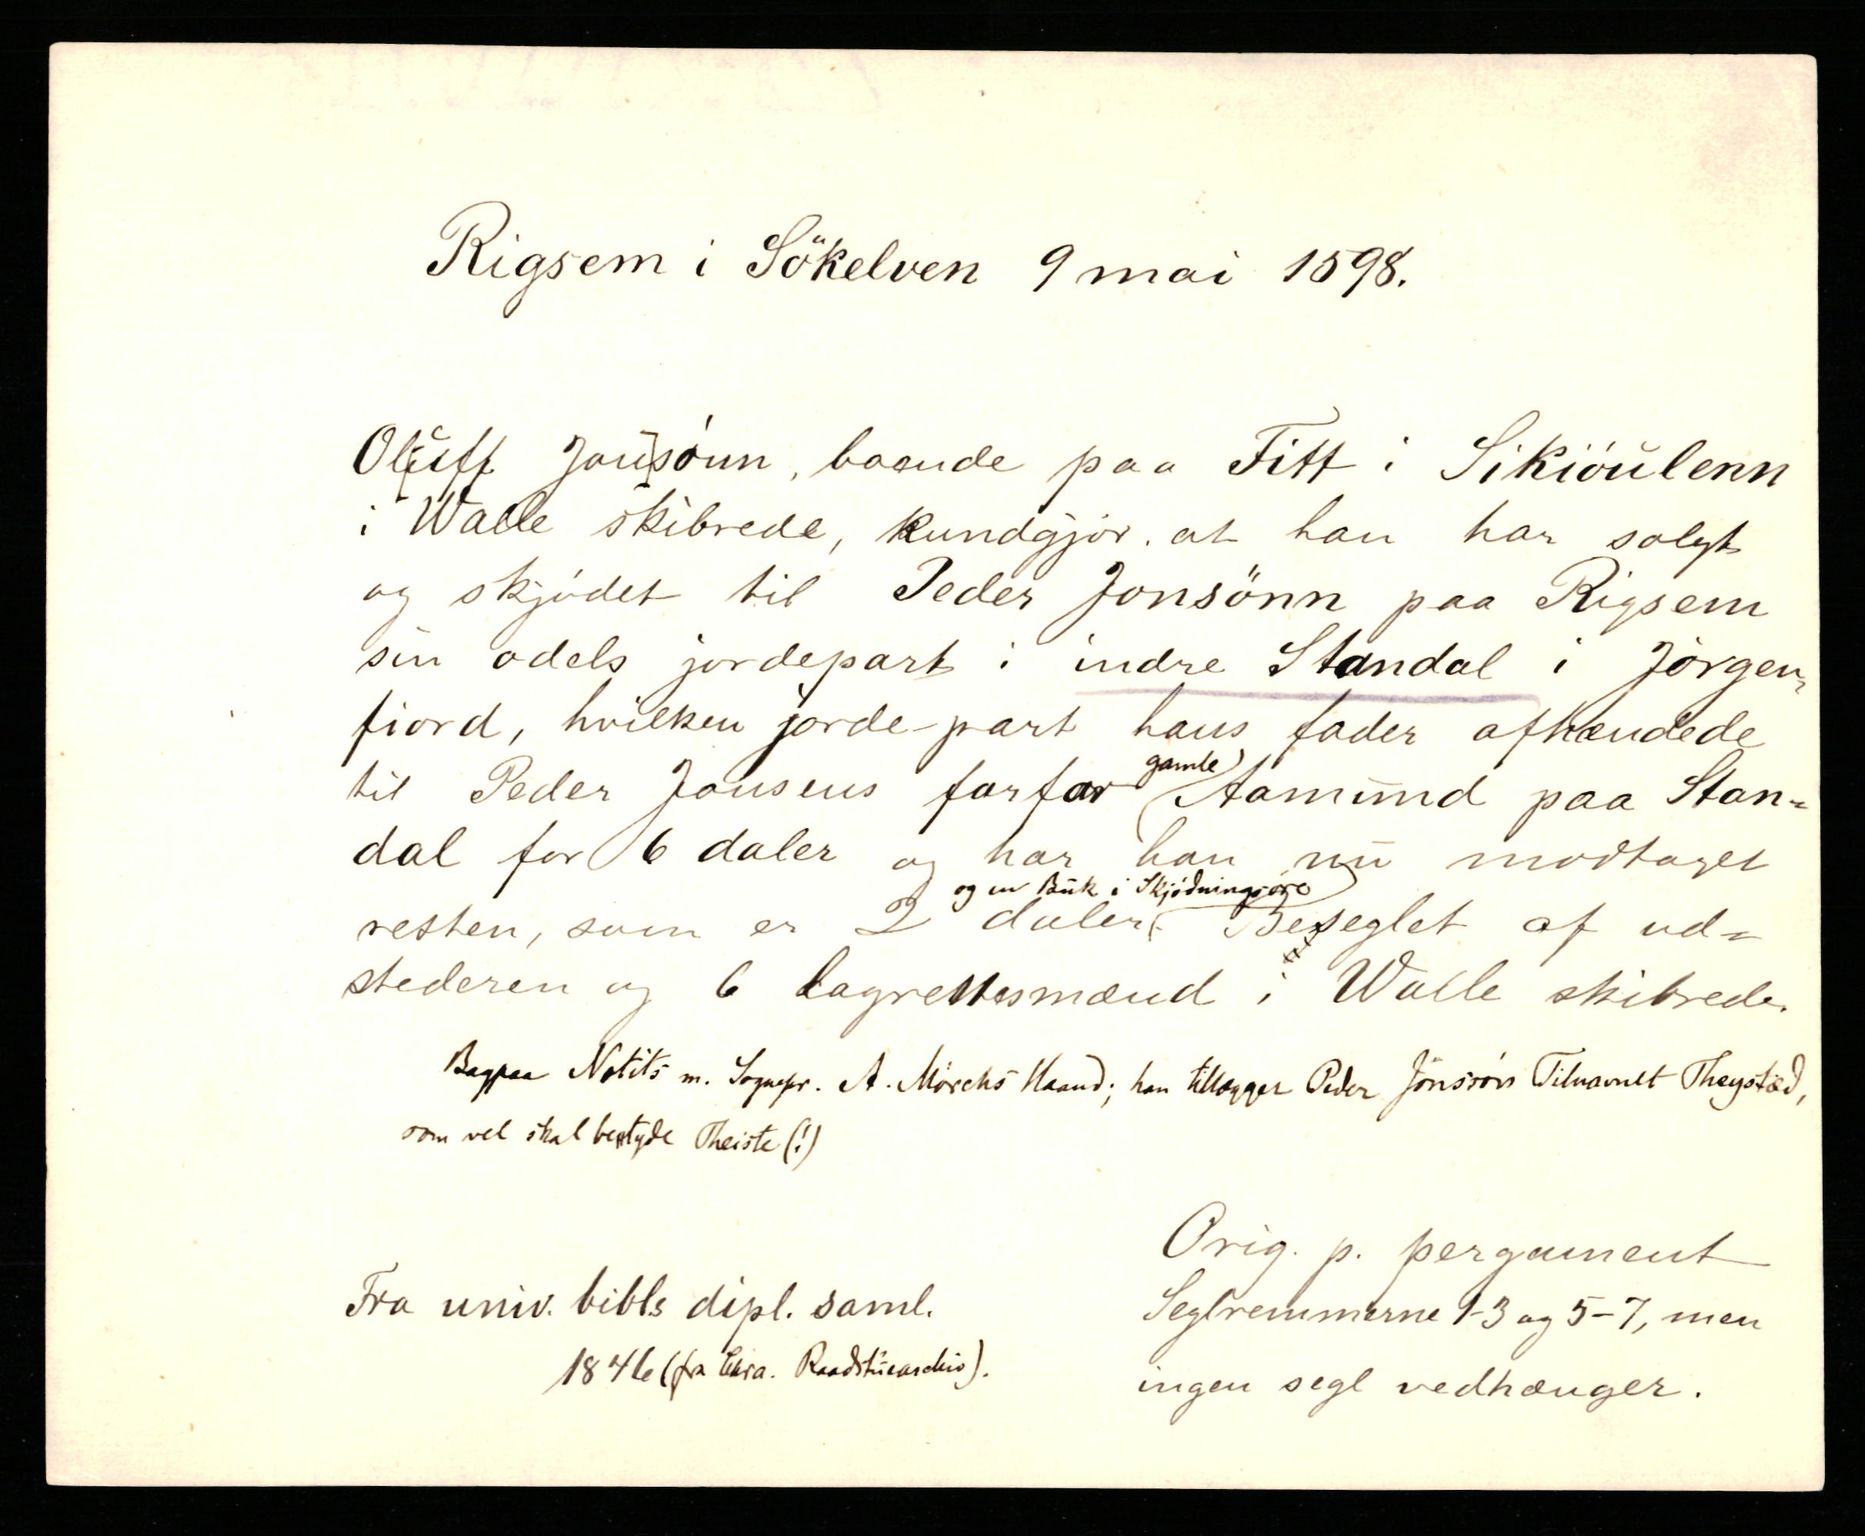 Rigsem i Sökelven 9 mai 1598.
Oluff Jonsönn, boende paa Fitt i Sikiöulenn
i Walle skibrede, kundgjör at han har solgt
og skjödet til Peder Jonsönn paa Rigsem
sin odels jordepart i indre Standal i Jörgen-
fiord, hvilken jorde-part hans fader afhændede
til Peder Jonsens farfar gamle Aamund paa Stan=
dal for 6 daler og har han nu modtaget
resten, som er 2 daler og en Buk i Skjödningsöre. Beseglet af ud=
stederen og 6 lagrettesmænd i Walle skibrede.
Bagpaa Notits m. Sognepr. A. Mörchs Haand; han tillægger Peder Jönssön Tilnavnet Theystæd,
som vel skal betyde Theiste (!)
Orig. p. pergament
Seglremmerne 1-3 og 5-7, men
ingen segl vedhænger.
Fra univ. bibls dipl. saml.
1846 (fra Chra. Raadstuearchiv).